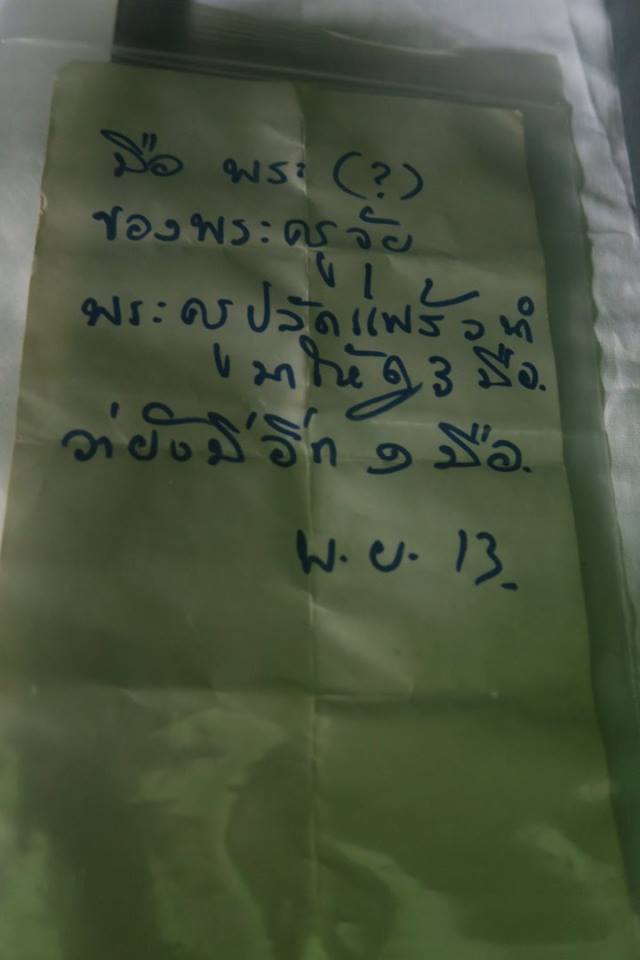 มือ พระ (?)
ของพระครูวัย
พระครูปลัดแพรัว ทำ
มาให้ดู 3 มือ.
ว่ายังมีอีก ๑ มือ.
พ.ย. 13.